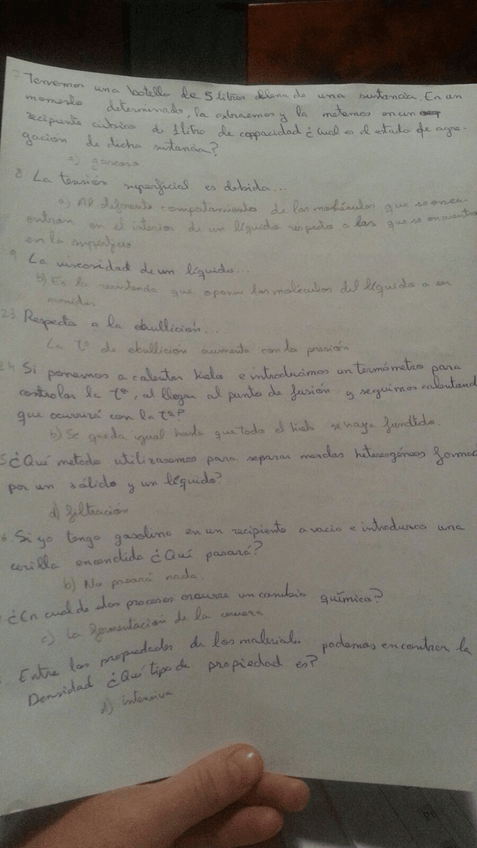 7 Tenemos una botella de 5 litros llena de una sustancia. En un
momento determinado, la extraemos y la metemos en un
recipiente cúbico de 1 litro de capacidad ¿Cual es el estado de agre-
gación de dicha sustancia?
a) gaseoso
8 La tensión superficial es debida...
a) Al diferente comportamiento de las moléculas que se encu-
entran en el interior de un líquido respecto a las que se encuentran
en la superficie
9 La viscosidad de un líquido...
b) Es la resistencia que oponen las moléculas del líquido a
23. Respecto a la ebullición...
La Tº de ebullición aumenta con la presión
24 Si ponemos a calentar hielo e introducimos un termómetro para
controlar la Tª, al llegar al punto de fusión y seguimos calentand
que ocurrirá con la tªª
b) Se queda igual hasta que todo el hielo se haya fundido
5 ¿Qué metodo utilizaremos para separar mezclas heterogéneas formad
por un sólido y un líquido?
d) filtracion
Si yo tengo gasolina en un recipiente a vacio e introduzco una
cerilla encendida ¿Qué pasará?
b) No pasará nada
¿En cual de procesos ocurre un cambio química?
c) La fermentación de la
Entre las propiedades de los materiales podemos encontrar la
Densidad ¿Qué tipo de propiedad es?
d) intensiva